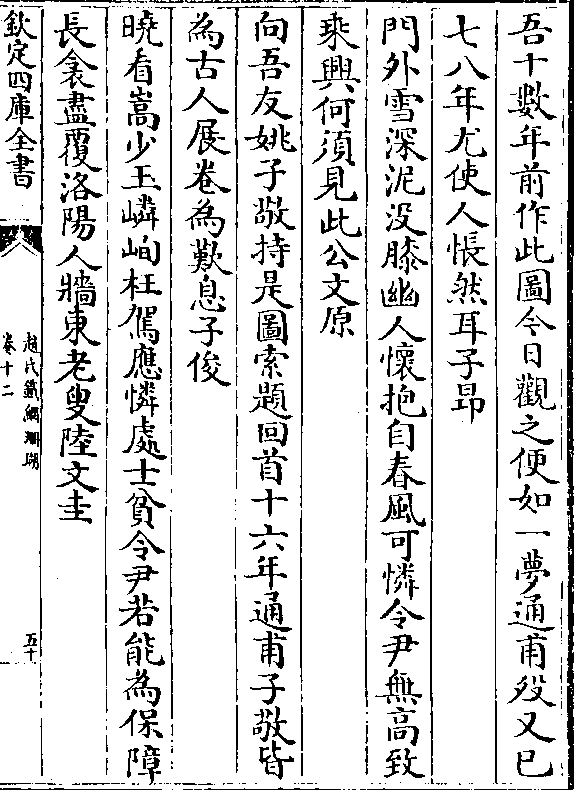 吾十數年前作此圖今日觀之便如一夢通甫殁又已
七八年尤使人悵然耳子昻
門外雪深泥没膝幽人懷抱自春風可憐令尹無高致
乗興何須見此公文原
向吾友姚子敬持是圖索題回首十六年通甫子敬皆
為古人展卷為歎息子俊
曉看嵩少玉嶙峋枉駕應憐處士貧令尹若能為保障
長衾盡覆洛陽人牆東老叟陸文圭
欽定四庫全書
趙氏鐵網珊瑚
卷十二
五十